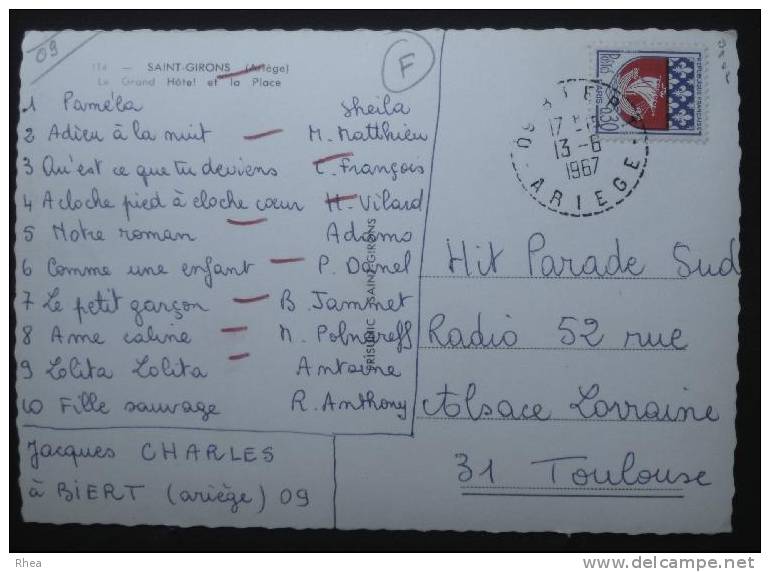 09
F
114 — SAINT-GIRONS (Ariège)
Le Grand Hôtel et la Place
1 Paméla Sheila
2 Adieu à la nuit — M. Matthieu
3 Qu'est ce que tu deviens C. François
4 A cloche pied à cloche cœur H. Vilard
5 Notre roman Adamo
6 Comme une enfant — P. Danel
7 Le petit garçon — B. Jammet
8 Ame caline — M. Polnareff
9 Lolita Lolita — Antoine
10 Fille sauvage R. Anthony
Jacques CHARLES
à BIERT (ariège) 09
PRISUNIC SAINT-GIRONS
REPUBLIQUE FRANÇAISE
PARIS
0,30
09 BIERT
13 -6
1967
ARIEGE
Hit Parade Sud
Radio 52 rue
Alsace Lorraine
31 Toulouse
Rhea
www.delcampe.net